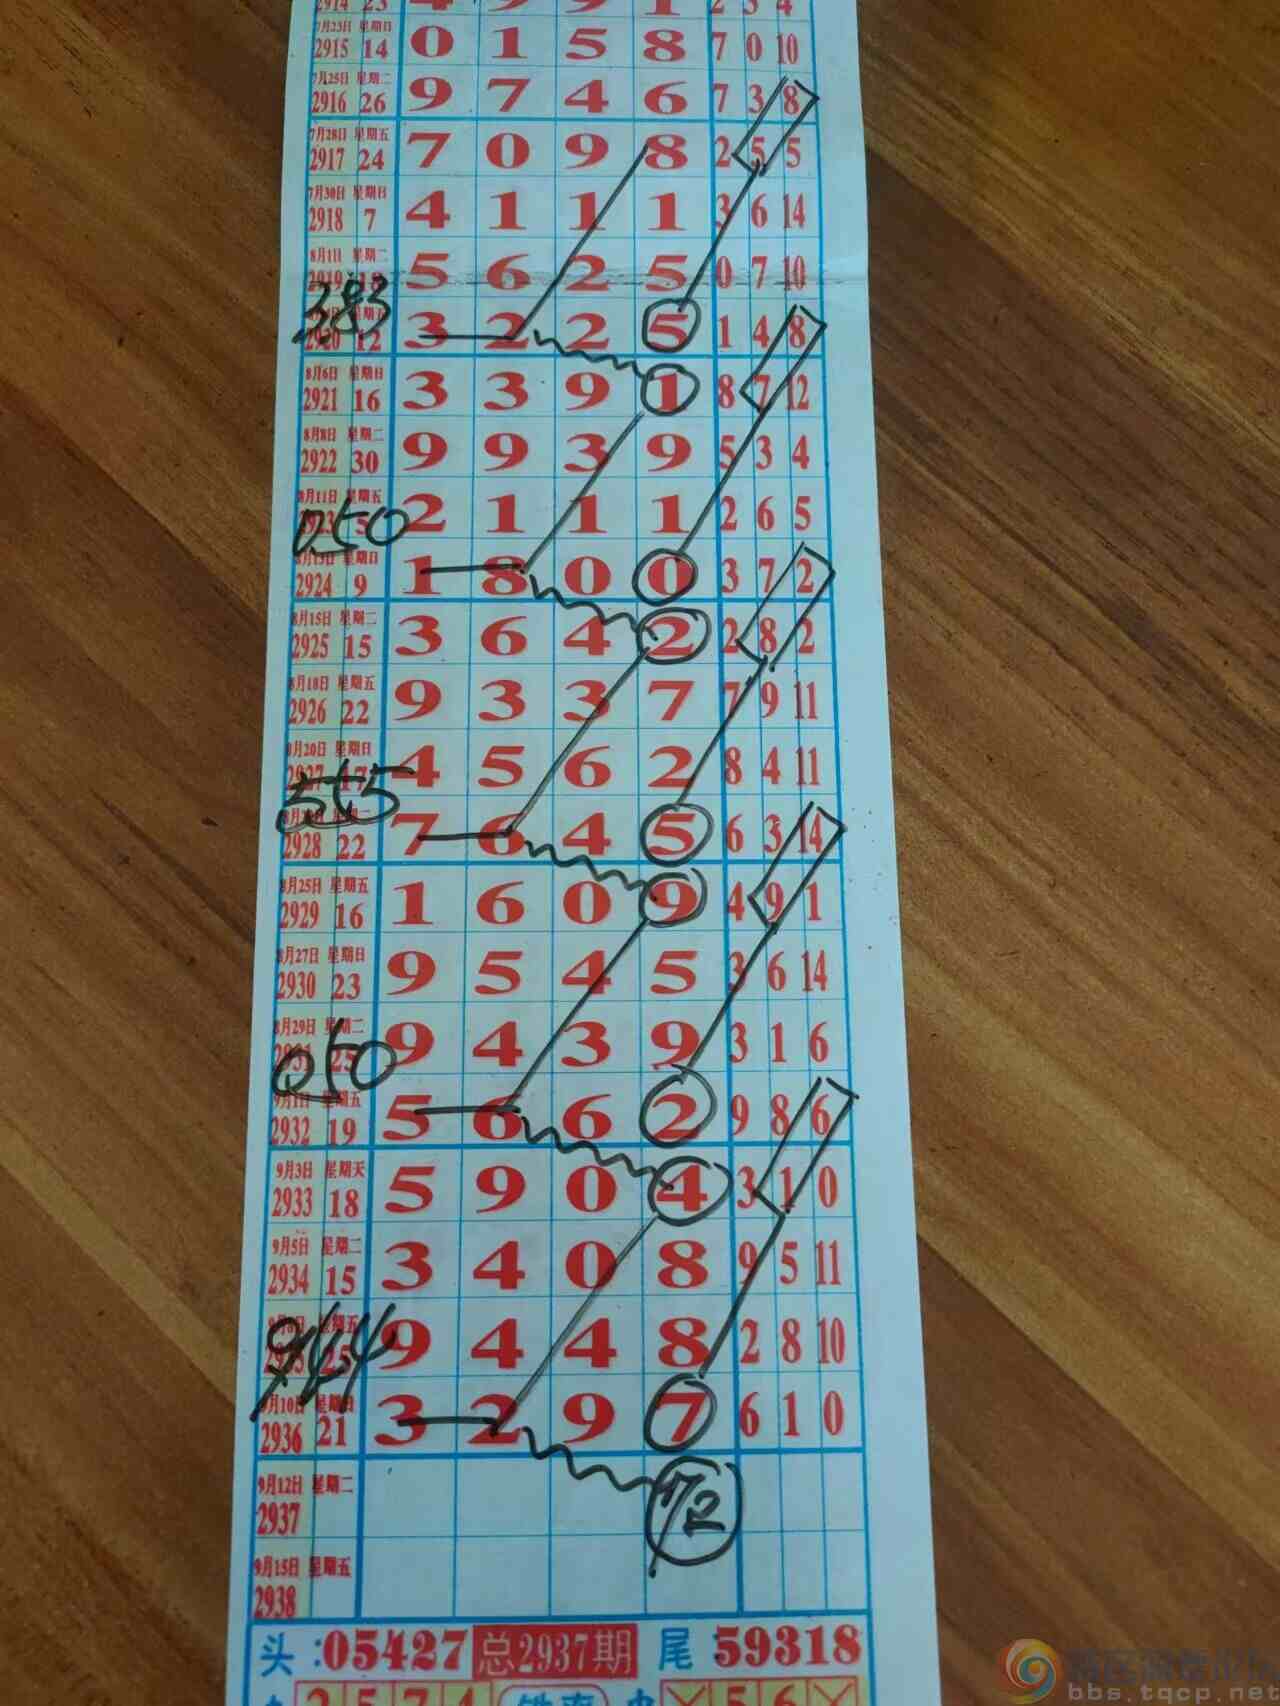 2914 23 4 9 9 1 2 3 4
7月23日 星期日
2915 14 0 1 5 8 7 0 10
7月25日 星期二
2916 26 9 7 4 6 7 3 8
7月28日 星期五
2917 24 7 0 9 8 2 5 5
7月30日 星期日
2918 7 4 1 1 1 3 6 14
8月1日 星期二
2919 5 6 2 5 0 7 10
383
2920 12 3 2 2 5 1 4 8
8月6日 星期日
2921 16 3 3 9 1 8 7 12
8月8日 星期二
2922 30 9 9 3 9 5 3 4
8月11日 星期五
2923 5 2 1 1 1 2 6 5
050
8月13日 星期日
2924 9 1 8 0 0 3 7 2
8月15日 星期二
2925 15 3 6 4 2 2 8 2
8月18日 星期五
2926 22 9 3 3 7 7 9 11
8月20日 星期日
2927 17 4 5 6 2 8 4 11
5t5
2928 22 7 6 4 5 6 3 14
8月25日 星期五
2929 16 1 6 0 9 4 9 1
8月27日 星期日
2930 23 9 5 4 5 3 6 14
8月29日 星期二
2931 25 9 4 3 9 3 1 6
050
9月1日 星期五
2932 19 5 6 6 2 9 8 6
9月3日 星期天
2933 18 5 9 0 4 3 1 0
9月5日 星期二
2934 15 3 4 0 8 9 5 11
9月8日 星期五
2935 25 9 4 4 8 2 8 10
944
9月10日 星期日
2936 21 3 2 9 7 6 1 0
9月12日 星期二
2937 72
9月15日 星期五
2938
头:05427 总2937期 尾 59318
2 5 7 4 5 6
bbs.tqcp.net